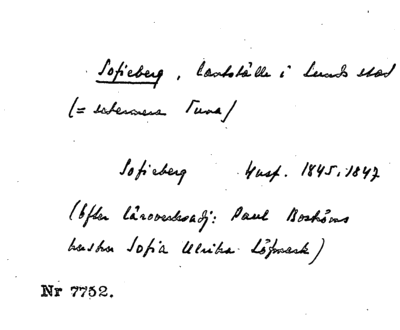 Sofieberg, lantställe i Lunds stad
(= sedermera Tuna)
Sofieberg Husf. 1845, 1847
(Efter läroverksadj: Paul Boströms
hustru Sofia Ulrika Löfmark)
Nr 7752.